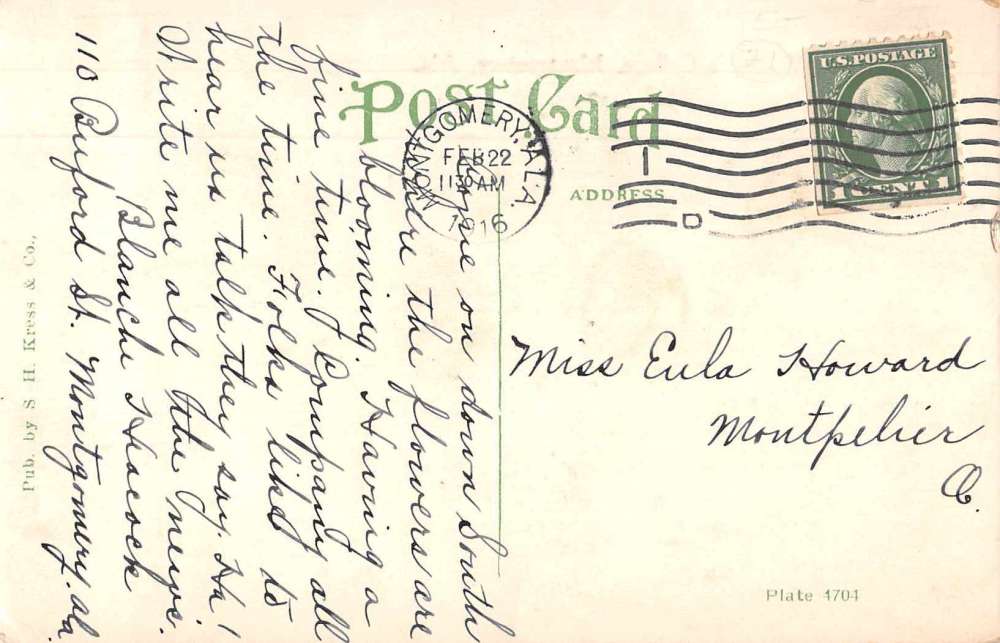 Post Card
U.S. POSTAGE
1 CENT 1
MONTGOMERY, ALA.
FEB 22
1130 AM
1916
ADDRESS
D
Come on down South
where the flowers are
blooming. Having a
fine time. Company all
the time. Folks like to
hear us talk they say. Ha!
Write me all the news.
Blanche Heacock
110 Buford St. Montgomery, Ala.
Miss Eula Howard
Montpelier
O.
Pub. by S. H. Kress & Co.,
Plate 4704